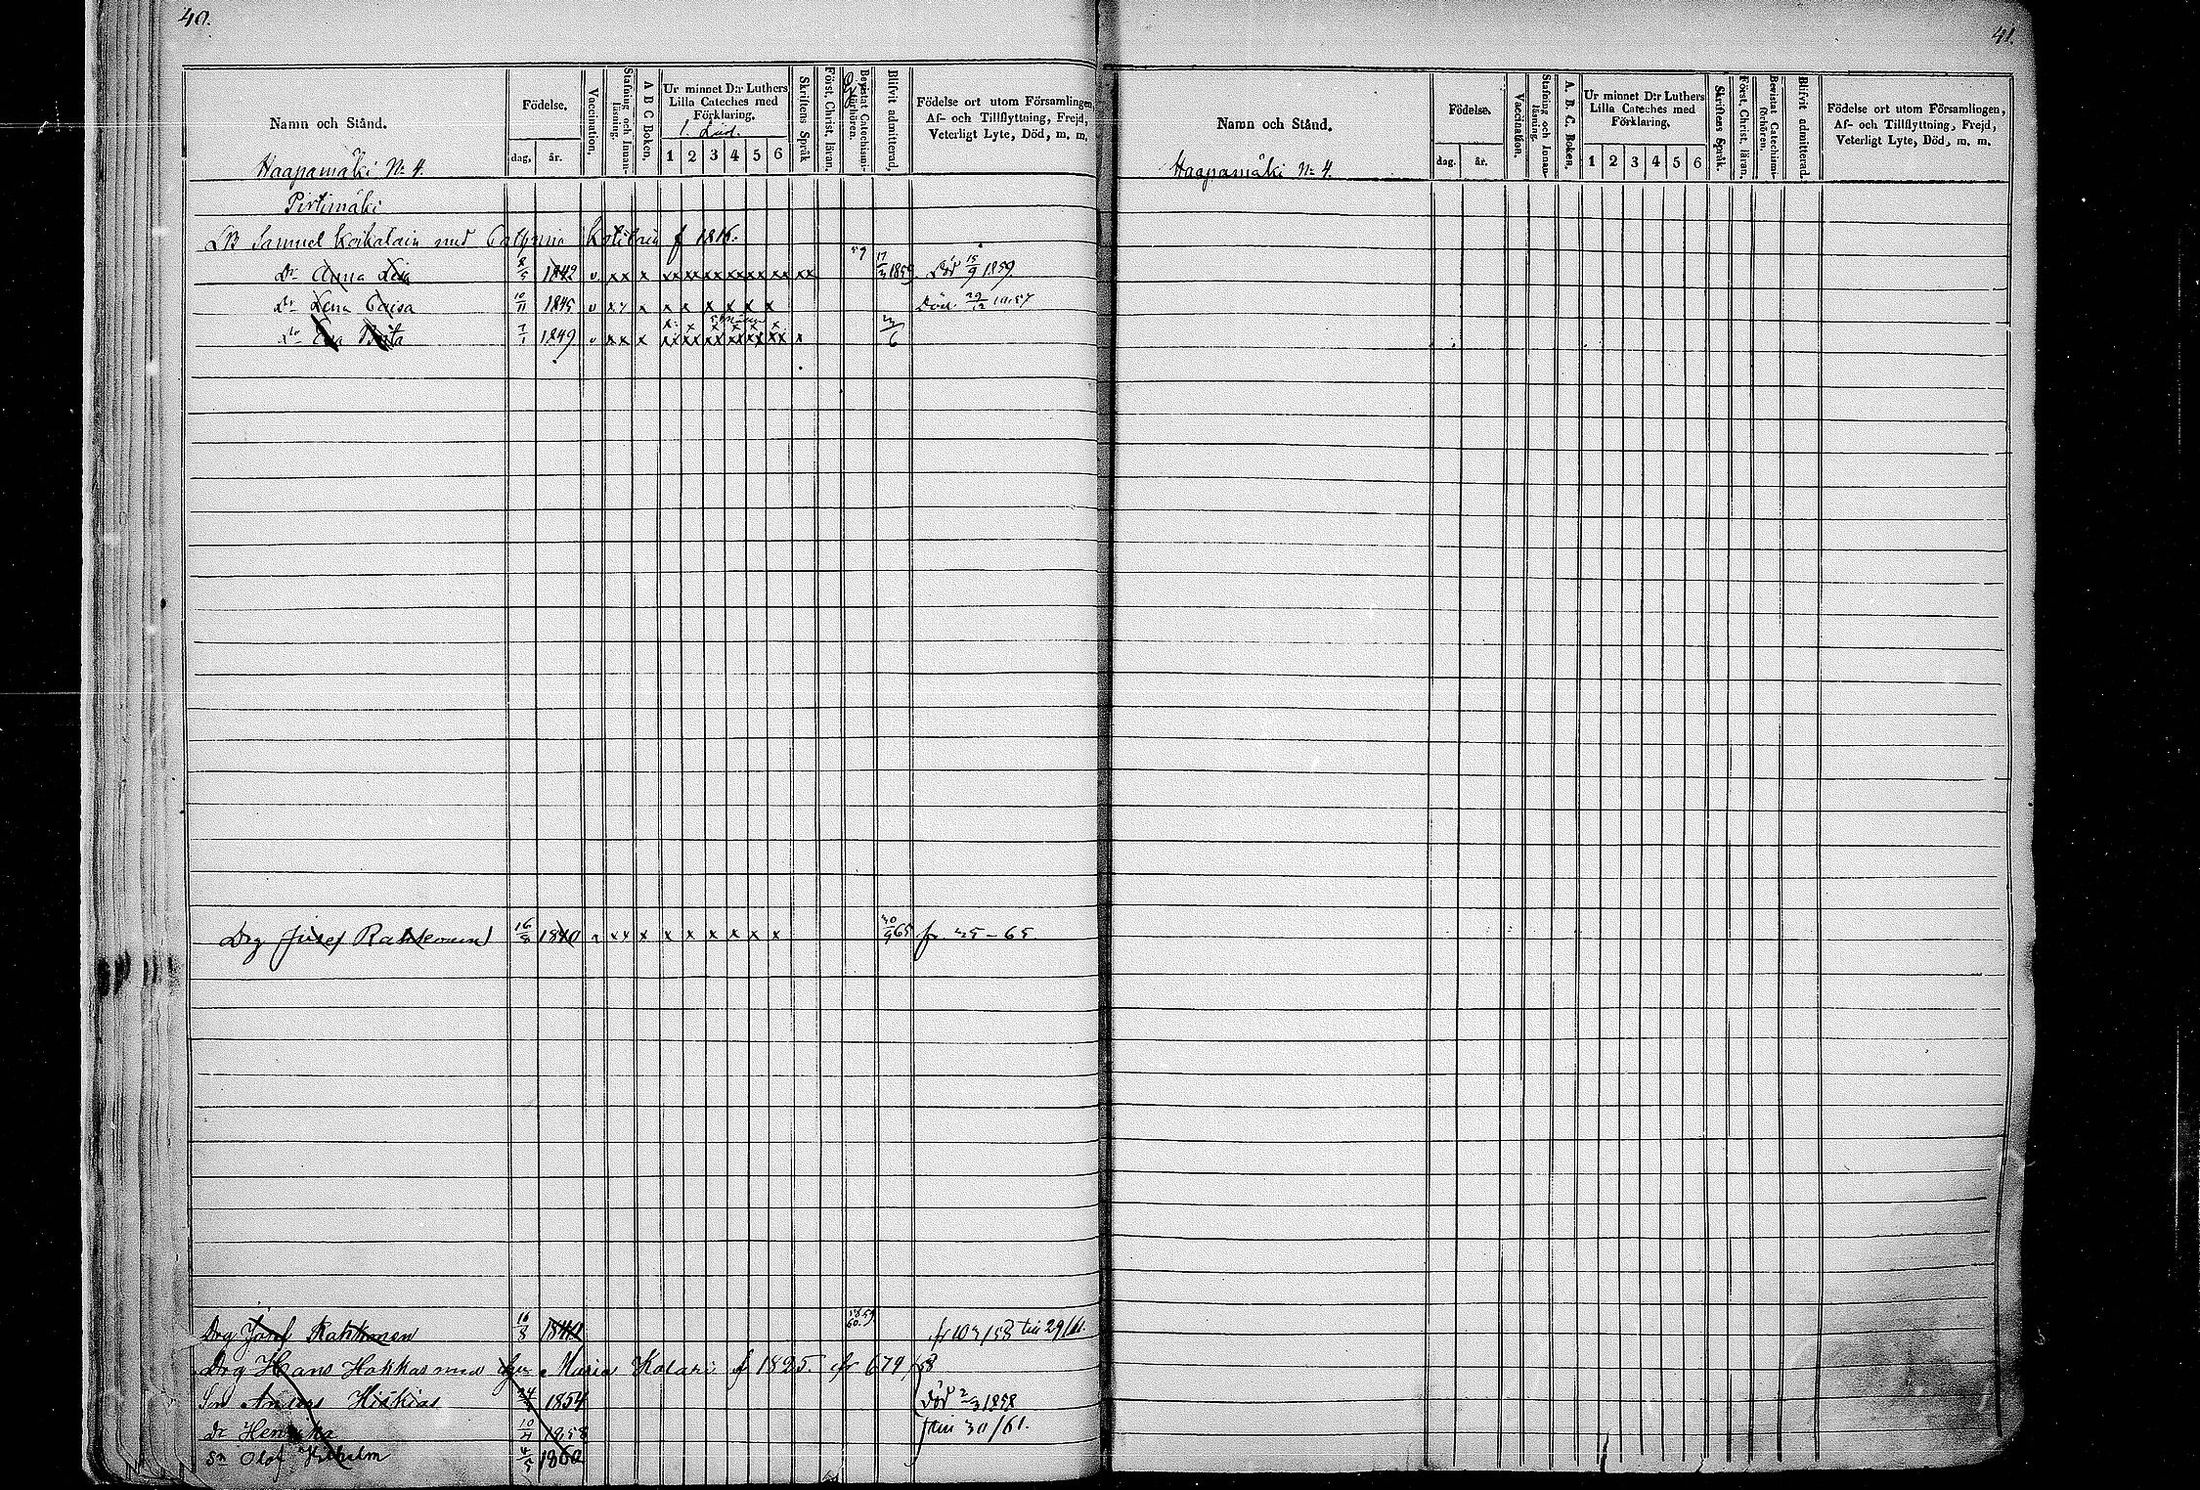 40.
Namn och Stånd.
Födelse.
dag, år.
Vaccination.
Stafning och Innanläsning.
A B C Boken.
Ur minnet D:r Luthers Lilla Cateches med Förklaring.
1 2 3 4 5 6
Skriftens Språk
Först. Christ. läran.
Bevistat Catechismiförhören.
Blifvit admitterad.
Födelse ort utom Församlingen, Af- och Tillflyttning, Frejd, Veterligt Lyte, Död, m. m.
Haapamäki No 4.
Pirtimäki
Samuel med f 1816.
Dr Anna Lisa 8/5 1842 v xx x xx xx xx xx xx xx xx 59 17/3 1859 Död 15/9 1859
Dr Lena Caisa 10/11 1845 v xx x x x x x x x Död 1857
Dr Eva Brita 7/1 1849 v xx x xx xx xx xx xx xx x
Drg Josef Rahkonen 16/8 1840 xx x x x x x x x 30/9 65 fr. 35-65
Drg Josef Rahkonen 16/8 1840 1859 60. fr 103/58 till 29/61.
Drg Hans Hakkas med Maria f 1825. fr 679/58
Son Anders Hiskias 24 1854 Död 2/3 1858
Dr Henrika 10/4 1858 till 30/61.
Sn Olof Wilhelm 4/5 1860
41.
Namn och Stånd.
Födelse.
dag. år.
Vaccination.
Stafning och Innanläsning.
A. B. C. Boken.
Ur minnet D:r Luthers Lilla Cateches med Förklaring.
1 2 3 4 5 6
Skriftens Språk.
Först. Christ. läran.
Bevistat Catechismiförhören.
Blifvit admitterad.
Födelse ort utom Församlingen, Af- och Tillflyttning, Frejd, Veterligt Lyte, Död, m. m.
Haapamäki No 4.